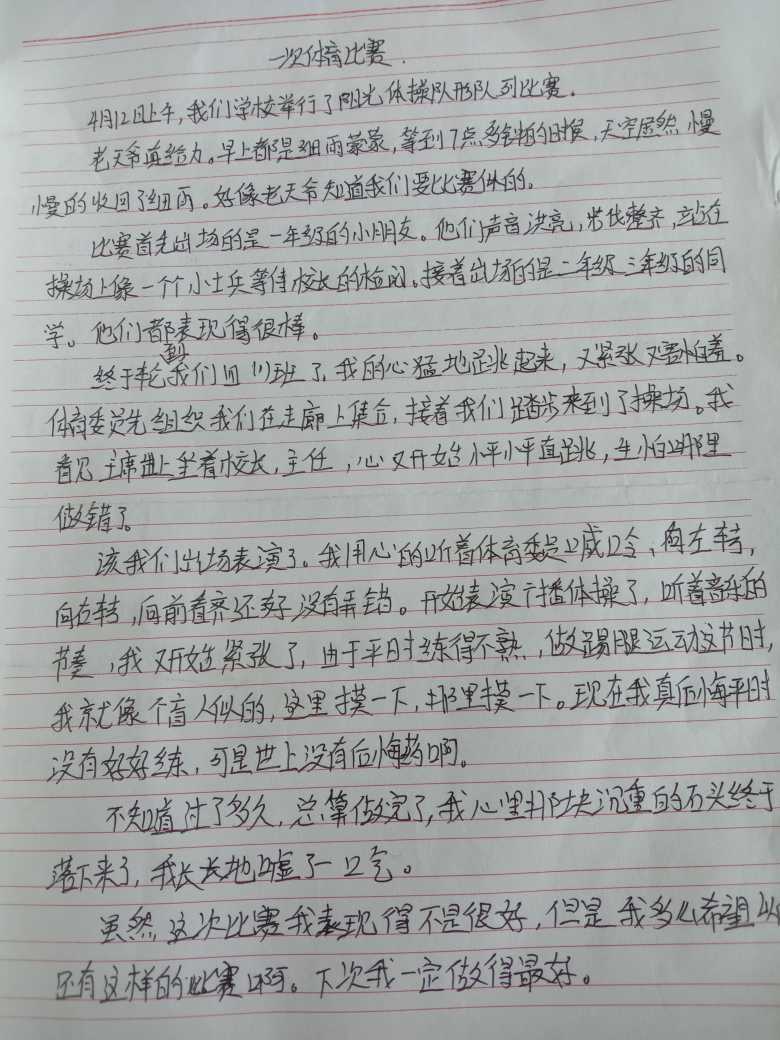 一次体育比赛.
4月12日上午,我们学校举行了阳光体操队形队列比赛.
老天爷真给力。早上都是细雨蒙蒙,等到7点多钟的时候,天空居然慢
慢的收回了细雨。好像老天爷知道我们要比赛似的。
比赛首先出场的是一年级的小朋友。他们声音洪亮,步伐整齐,站在
操场上像一个个小士兵等待校长的检阅。接着出场的是二年级三年级的同
学。他们都表现得很棒。
终于轮到我们四(1)班了,我的心猛地跳起来,又紧张又害怕羞。
体育委员先组织我们在走廊上集合,接着我们踏步来到了操场。我
看见主席台上坐着校长,主任,心又开始怦怦直跳,生怕哪里
做错了。
该我们出场表演了。我用心的听着体育委员喊口令、向左转,
向右转,向前看齐还好没有弄错。开始表演广播体操了,听着音乐的
节奏,我又开始紧张了,由于平时练得不熟,做踢腿运动这节时,
我就像个盲人似的,这里摸一下,那里摸一下。现在我真后悔平时
没有好好练,可是世上没有后悔药啊。
不知道过了多久,总算做完了,我心里那块沉重的石头终于
落下来了,我长长地嘘了一口气。
虽然这次比赛我表现得不是很好,但是我多么希望以
还有这样的比赛啊。下次我一定做得最好。